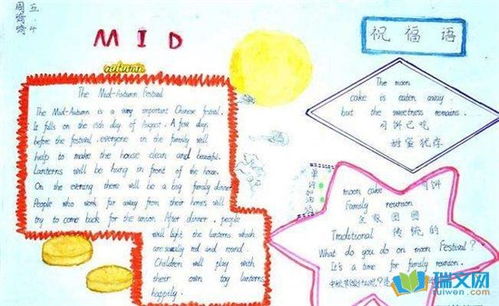 周五
MID
autumn
The Mid-Autumn Festival
The Mid-Autumn is a very important Chinese festival.
It falls on the 15th day of August. A few days
before the festival, everyone in the family will
help to make the house clean and beautiful.
Lanterns will be hung in front of the house.
On the evening there will be a big family dinner.
People who work far away from their homes will
try to come back for the union. After dinner, people
will light the lanterns which
are usually red and round.
Children will play with
their own toy lanterns
happily.
祝福语
The moon
cake is eaten away
but the sweetness remains.
月饼已吃
甜蜜犹存
单词
moon cake 月饼
Family reunion
全家团圆
Traditional 传统的
What do you do on moon Festival?
It's a time for family reunion.
瑞文网